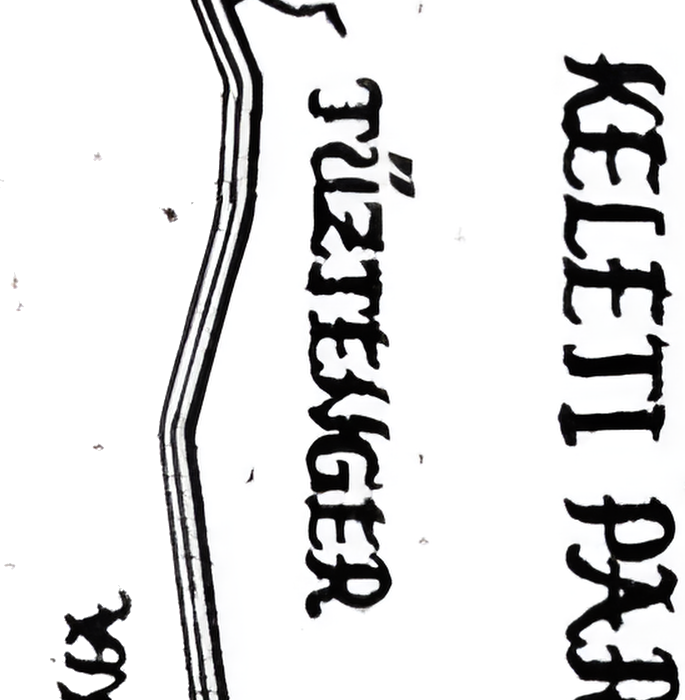 KELETI PAR
TŰZTENGER